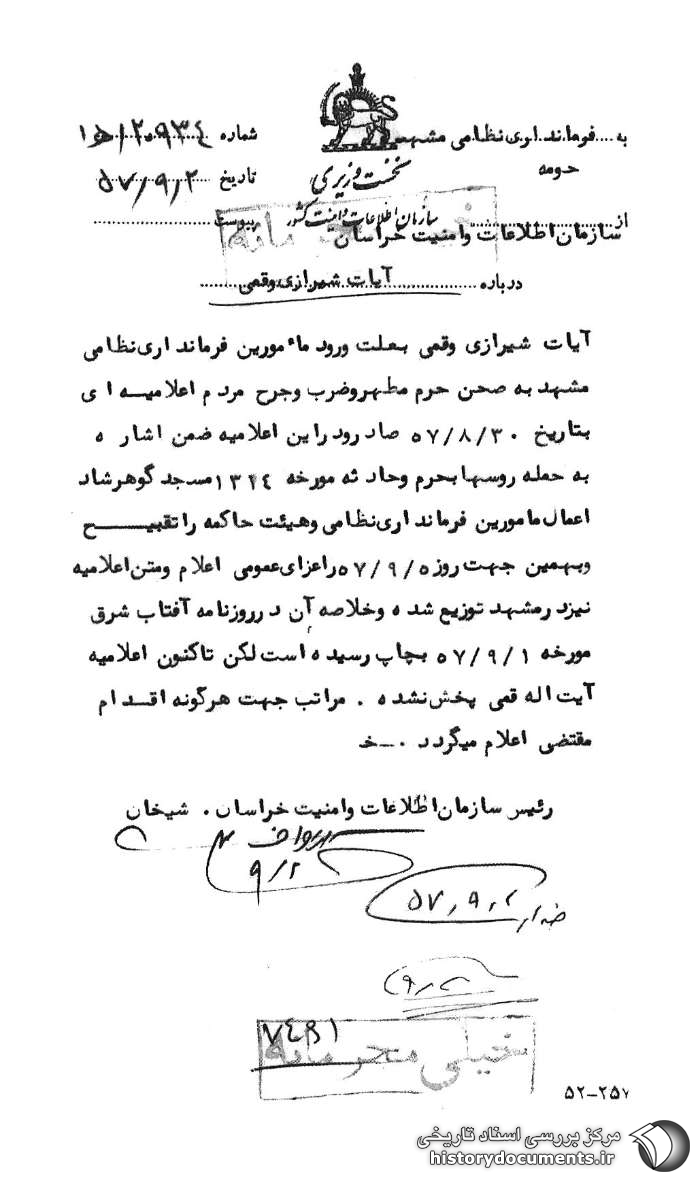 به .... فرمانداری نظامی مشهد
حومه
شماره ۱۵/۲۰۹۳٤
تاریخ ۵۷/۹/۲
نخست وزیری
سازمان اطلاعات و امنیت کشور
پیوست
خیلی محرمانه
از سازمان اطلاعات وامنیت خراسان
درباره آیات شیرازی وقمی
آیات شیرازی وقمی بعلت ورود ماٴمورین فرمانداری نظامی
مشهد به صحن حرم مطهر وضرب وجرح مردم اعلامیه ای
بتاریخ ۵۷/۸/۳۰ صادر ود راین اعلامیه ضمن اشاره
به حمله روسها بحرم وحادثه مورخه ۱۳۱٤ مسجد گوهرشاد
اعمال مامورین فرمانداری نظامی وهیئت حاکمه را تقبیح
وبهمین جهت روز ۵۷/۹/۵ راعزای عمومی اعلام ومتن اعلامیه
نیزد رمشهد توزیع شده وخلاصه آن د رروزنامه آفتاب شرق
مورخه ۵۷/۹/۱ بچاپ رسیده است لکن تاکنون اعلامیه
آیت اله قمی پخش نشده . مراتب جهت هرگونه اقدام
مقتضی اعلام میگردد .ـخـ
رئیس سازمان اطلاعات وامنیت خراسان . شیخان
۹/۲
۵۷,۹,۲
۷٤۹۱
خیلی محرمانه
۵۲-۲۵۷
مرکز بررسی اسناد تاریخی
historydocuments.ir